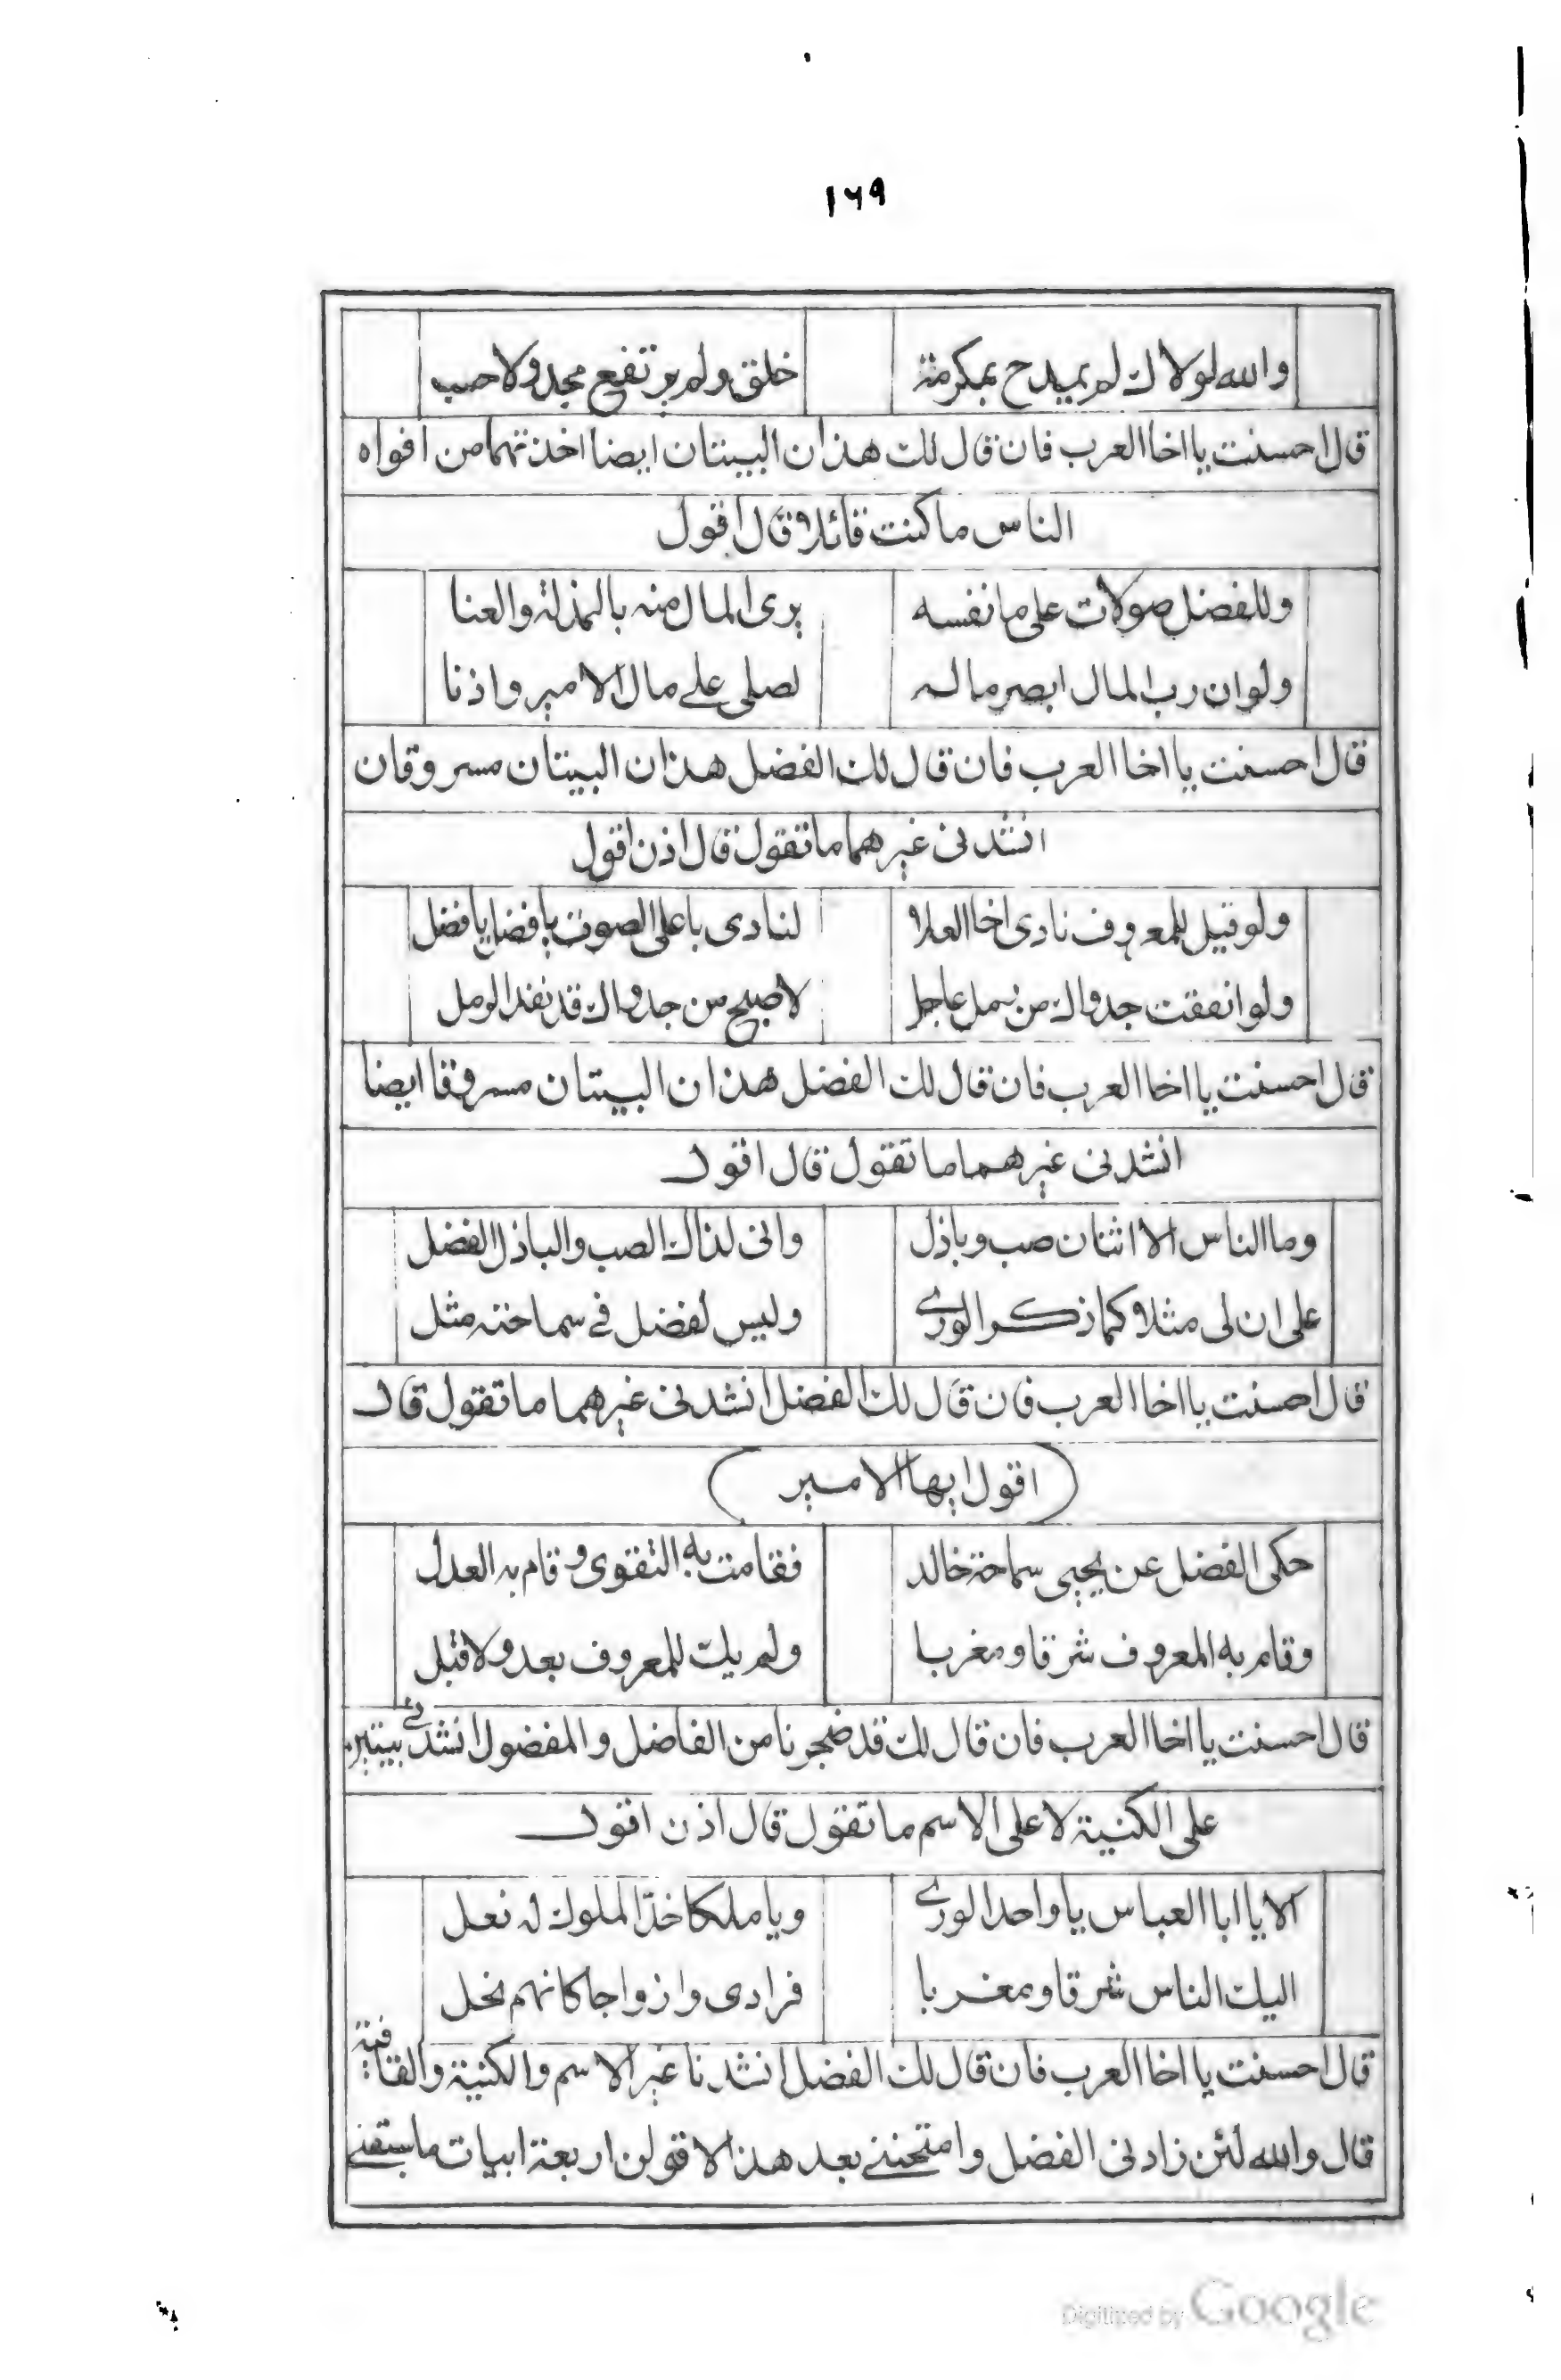 ١٦٩
والله لولاك لم يمدح بمكرمة خلق ولم يرتفع مجد ولا حسب
قال احسنت يا اخا العرب فان قال لك هذان البيتان ايضا اخذتهما من افواه
الناس ما كنت قائلا قال اقول
وللفضل صولات على مانفسه يرى المال منه بالمذلة والعنا
ولو ان رب المال ابصر ماله لصلى على مال الامير واذنا
قال احسنت يا اخا العرب فان قال لك الفضل هذان البيتان مسروقان
انشدنى غيرهما ما تقول قال اذن اقول
ولو قيل للمعروف نادى اخا العلا لنادى باعلى الصوت يا فضل يا فضل
ولو انفقت جدواك من رمل عالج لاصبح من جدواك قد نفد الرمل
قال احسنت يا اخا العرب فان قال لك الفضل هذان البيتان مسروقا ايضا
انشدنى غيرهما ما تقول قال اقول
وما الناس الا اثنان صب وباذل وانى لذاك الصب والباذل الفضل
على ان لى مثلا كما ذكر الورى وليس لفضل فى سماحته مثل
قال احسنت يا اخا العرب فان قال لك الفضل انشدنى غيرهما ما تقول قال
(اقول ايها الامير)
حكى الفضل عن يحيى سماحة خالد فقامت به التقوى وقام به العدل
وقام به المعروف شرقا ومغربا ولم يك للمعروف بعد ولا قبل
قال احسنت يا اخا العرب فان قال لك قد ضجرنا من الفاضل والمفضول انشدنى بيتين
على الكنية لا على الاسم ما تقول قال اذن اقول
الا يا ابا العباس يا واحد الورى ويا ملكا خد الملوك له نعل
اليك الناس شرقا ومغربا فرادى وازواجا كانهم نحل
قال احسنت يا اخا العرب فان قال لك الفضل انشدنا غير الاسم والكنية والقافية
قال والله لئن زادنى الفضل وامتحننى بعد هذا لاقولن اربعة ابيات ما سبقنى
Digitized by Google